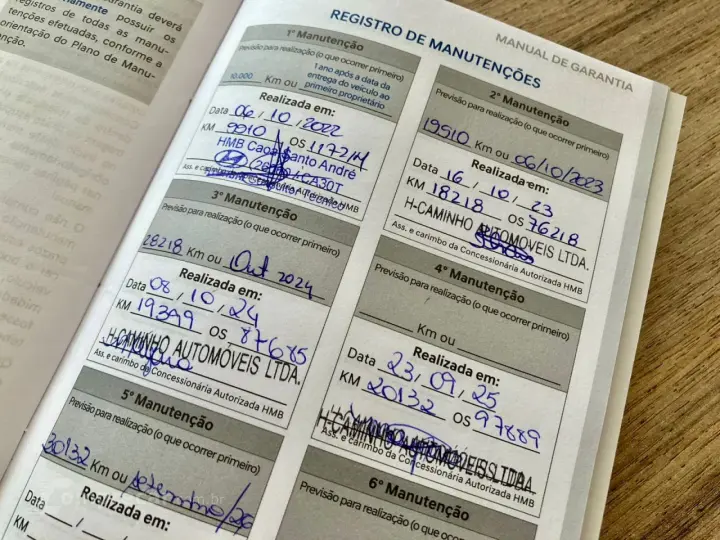 Garantia deverá
amente possuir os
registros de todas as manu-
tenções efetuadas, conforme a
orientação do Plano de Manu-
nção.
MANUAL DE GARANTIA
REGISTRO DE MANUTENÇÕES
1ª Manutenção
Previsão para realização (o que ocorrer primeiro)
10.000 Km ou 1 ano após a data da
entrega do veículo ao
primeiro proprietário
Realizada em:
Data 06, 10, 2022
KM 9910 OS 117214
HMB Caoa Santo André
CA30T
Técnico
Ass. e carimbo da Concessionária Autorizada HMB
2ª Manutenção
Previsão para realização (o que ocorrer primeiro)
19910 Km ou 06/10/2023
Realizada em:
Data 16, 10, 23
KM 18218 OS 76218
H-CAMINHO AUTOMÓVEIS LTDA.
Ass. e carimbo da Concessionária Autorizada HMB
3ª Manutenção
Previsão para realização (o que ocorrer primeiro)
28218 Km ou Out 2024
Realizada em:
Data 08, 10, 24
KM 19399 OS 87685
H-CAMINHO AUTOMÓVEIS LTDA.
Ass. e carimbo da Concessionária Autorizada HMB
4ª Manutenção
Previsão para realização (o que ocorrer primeiro)
Km ou
Realizada em:
Data 23, 09, 25
KM 20132 OS 97889
H-CAMINHO AUTOMÓVEIS LTDA.
Ass. e carimbo da Concessionária Autorizada HMB
5ª Manutenção
Previsão para realização (o que ocorrer primeiro)
30132 Km ou setembro/26
Realizada em:
Data
KM
6ª Manutenção
Previsão para realização (o que ocorrer primeiro)
Km ou